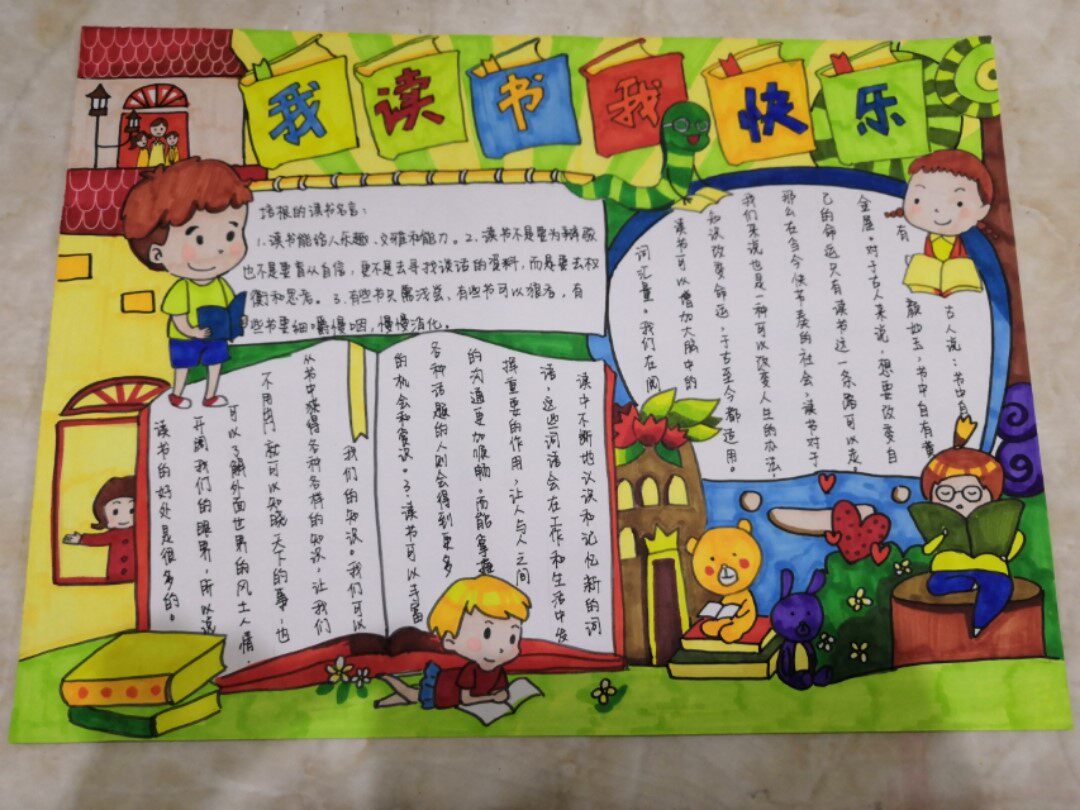 我读书我快乐
培根的读书名言：
1.读书能给人乐趣、文雅和能力。2.读书不是要为
也不是要盲从自信，更不是去寻找谈话的资料，而是要去权
衡和思考。3.有些书只需浅尝，有些书可以狼吞，有
些书要细嚼慢咽，慢慢消化。
古人说：书中自
有颜如玉，书中自有黄
金屋。对于古人来说，想要改变自
己的命运只有读书这一条路可以走。
那么在当今快节奏的社会，读书对于
我们来说也是一种可以改变人生的办法，
知识改变命运，于古至今都适用。
读书可以增加大脑中的
词汇量。我们在阅
读中不断地认识和记忆新的词
语，这些词语会在工作和生活中发
挥重要的作用，让人与人之间
的沟通更加顺畅。而能掌握
各种话题的人则会得到更多
的机会和赏识。3、读书可以丰富
我们的知识。我们可以
从书中获得各种各样的知识，让我们
不用出门就可以知晓天下的事，也
可以了解外面世界的风土人情，
开阔我们的眼界，所以说
读书的好处是很多的。